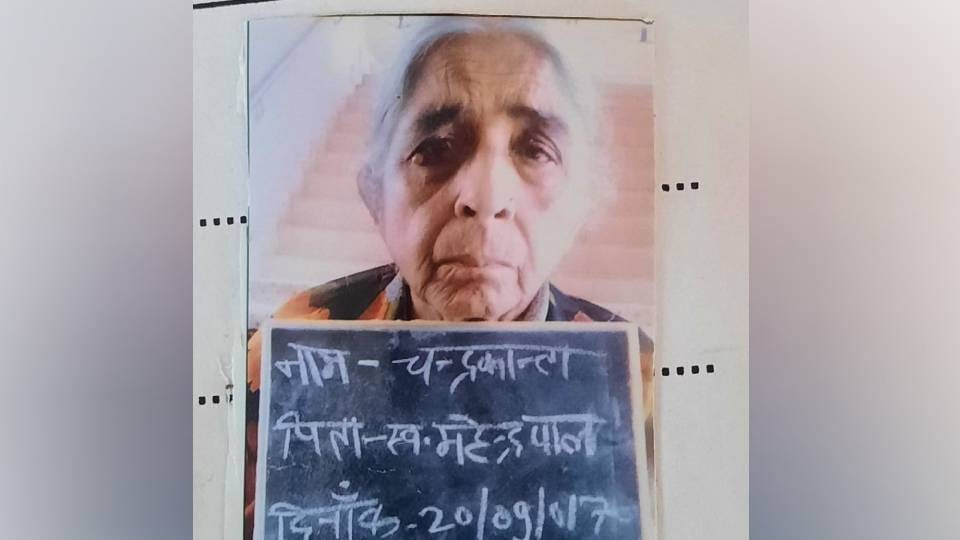 नाम - चन्द्रकान्ता
पिता - स्व. महेन्द्रपाल
दिनाँक - 20/09/017